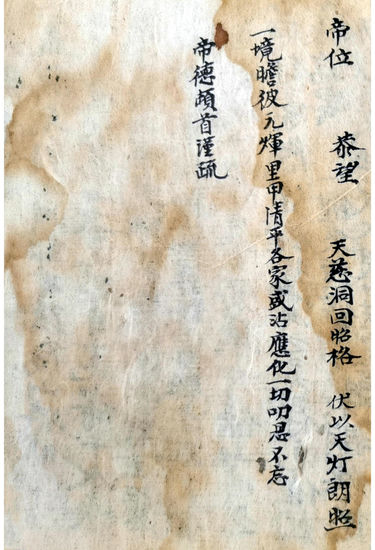 帝位 恭望 天慈洞回昭格 伏以天灯朗照
一境瞻彼元輝里甲清平各家咸沾應化一切叨恩不忘
帝德頓首謹疏